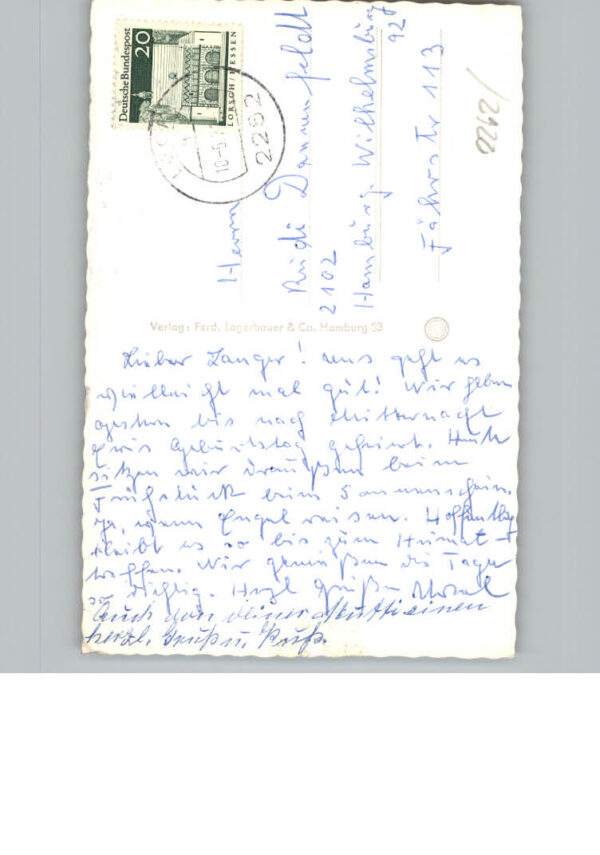 Deutsche Bundespost
20
LORSCH/HESSEN
10-6
2282
Herrn
Rudi Dannenfeldt
2102
Hamburg, Wilhelmsburg
92
Fährstr 113
2120
Verlag: Ferd. Lagerbauer & Co. Hamburg 33
Lieber Langer! uns geht es
vielleicht mal gut! Wir haben
gestern bis nach Mitternacht
Geburtstag gefeiert. Heute
sitzen wir draußen beim
Frühstück beim Sonnenschein.
Ja, wenn Engel reisen. Hoffentlich
bleibt es so bis zum Heimat-
treffen. Wir genießen die Tage
so richtig. Herzl Grüße
Auch von deiner Mutti einen
herzl. Gruß u. Kuß.